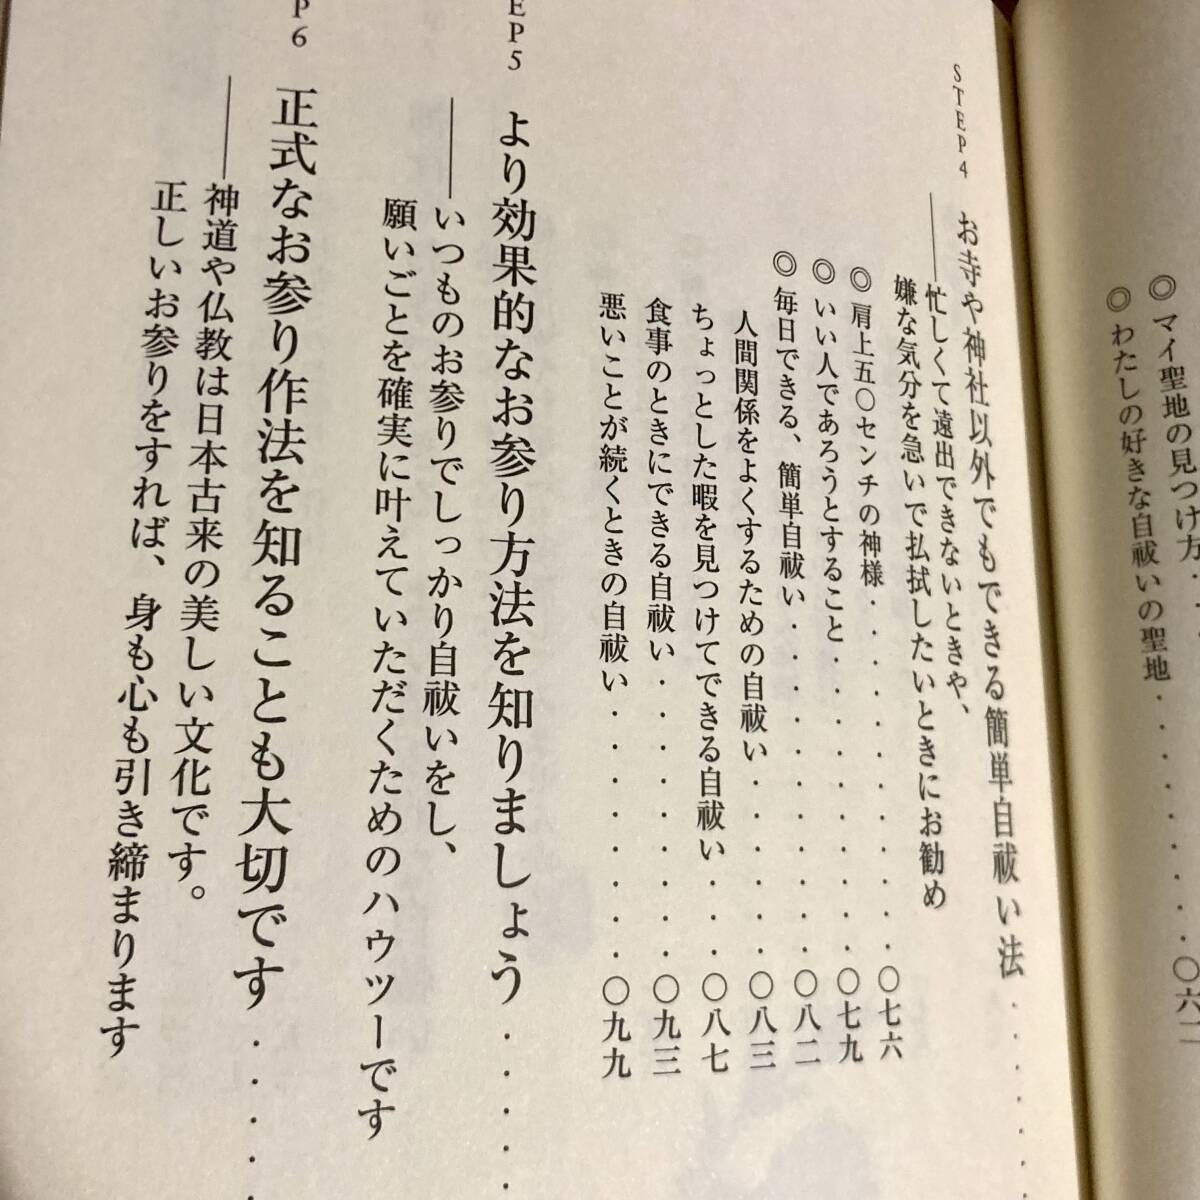 ◎マイ聖地の見つけ方・・
◎わたしの好きな自祓いの聖地・・・・・・・〇六二
STEP4 お寺や神社以外でもできる簡単自祓い法・・・・・・
――忙しくて遠出できないときや、
嫌な気分を急いで払拭したいときにお勧め
◎肩上五〇センチの神様・・・・・・・・・・〇七六
◎いい人であろうとすること・・・・・・・・〇七九
◎毎日できる、簡単自祓い・・・・・・・・・〇八二
人間関係をよくするための自祓い・・・・・・〇八三
ちょっとした暇を見つけてできる自祓い・・・〇八七
食事のときにできる自祓い・・・・・・・・・〇九三
悪いことが続くときの自祓い・・・・・・・・〇九九
EP5 より効果的なお参り方法を知りましょう・・・・・
――いつものお参りでしっかり自祓いをし、
願いごとを確実に叶えていただくためのハウツーです
P6 正式なお参り作法を知ることも大切です・・・・・
――神道や仏教は日本古来の美しい文化です。
正しいお参りをすれば、身も心も引き締まります